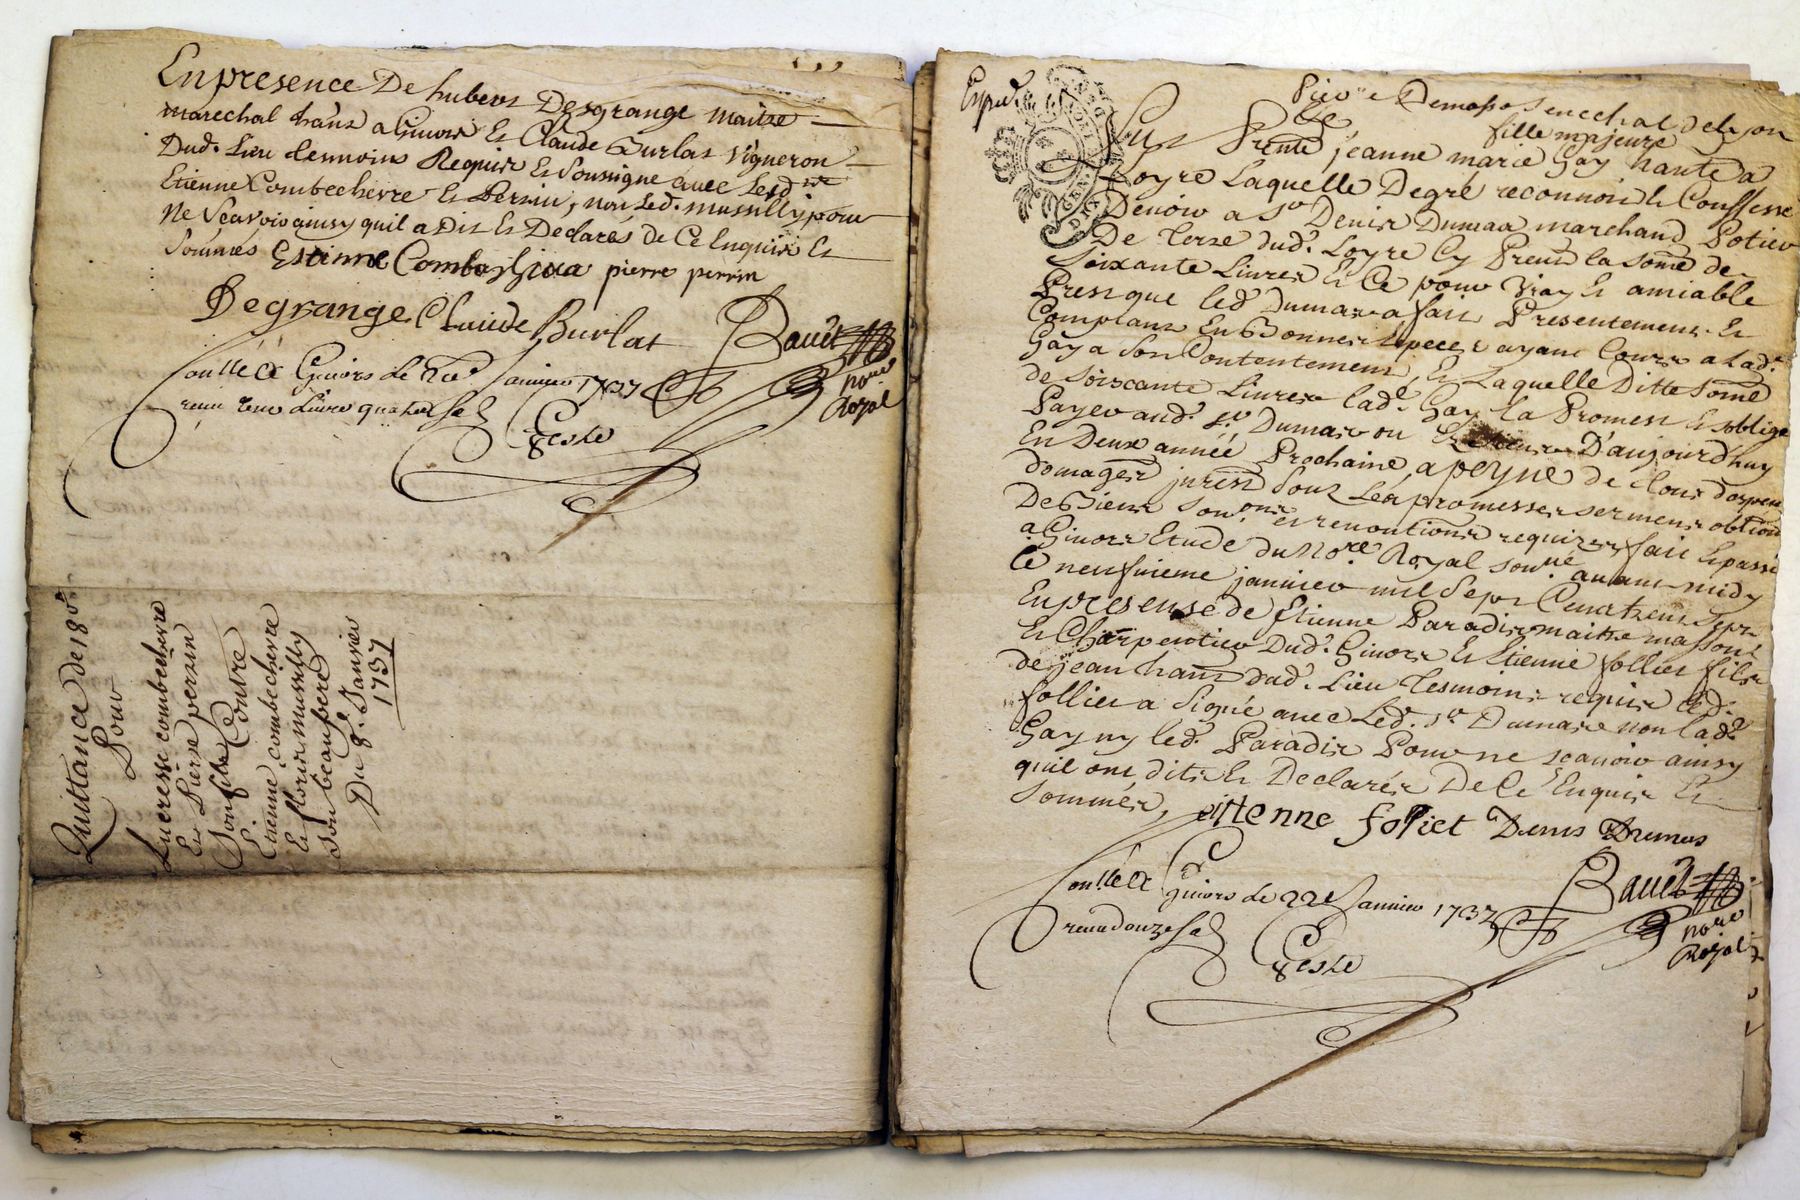 En presence De hubert Desgrange maitre
marechal hant a Givors Et Claude Burlat Vigneron
Dud. Lieu tesmoins Requis Et Soussigné avec Lesd.
Etienne Combecherre Et Perrin, non Led. mussilly pour
Ne Scavoir ainsy quil a Dit Et Declarés de Ce Enquis Et
Sommés Estinne Combechirra pierre perrin
Degrange Claude Burlat Bauet
nore
Royal
Conllé a Givors le Janvier 1737
receu Livre quatre sols
Geste
Quittance de 180
Pour
Lucresse combecherre
Et Pierre perrin
Son fils Contre
Etienne combecherre
Et floris mussilly
Son beaupere
Du 8e. Janvier
1737
Expd.
Senechal de Lyon
fille majeure
Put Pnte jeanne marie Gay hante a
Loyre Laquelle De gré reconnoit Et Confesse
Devoir a Sr Denis Dumas marchand Potier
De Terre dud. Loyre Cy Preste la some de
Soixante Livres Et Ce pour Vray Et amiable
Prest que led. Dumas a fait Presentement Et
Comptant En Bonnes Especes ayant Cours a Lad.
Gay a Son Contentement, Et Laquelle Ditte Some
de Soixante Livres lad. Gay la Promest Et oblige
Payer aud. Sr. Dumas ou D'aujourd'huy
En Deux année Prochaine, a peyne de tous depens
domages jures Sous Les promesses serment obtion
De Biens Son.ons et renontions requises fait Et passé
a Givors Etude du Nore Royal son.né avant midy
le neufvieme janvier mil Sept Cent trente Sept
En presense de Etienne Paradis maitre masson
Et Charpentier Dud. Givors Et Etienne follier fils
de jean hant dud. Lieu tesmoins requis Led.
follier a Signé avec Led. Sr Dumas non lad.
Gay ny led. Paradis Pour ne scavoir ainsy
quil ont dits Et Declarés De Ce Enquis Et
Sommés, eittenne foliet Denis Dumas
Bauet
nore
Royal
Conllé a Givors le 22e Janvier 1737
receu douze sols
Geste